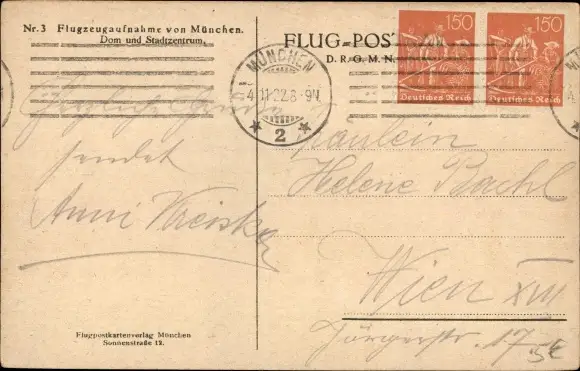 Nr. 3 Flugzeugaufnahme von München.
Dom und Stadtzentrum.
FLUG-POST
D. R. G. M. N.
150
150
Deutsches Reich
Deutsches Reich
MÜNCHEN
4.11.22.8-9V.
2
Herzlich
sendet
Anni
Fräulein
Helene Bachl
Wien XIII
17
5€
Flugpostkartenverlag München
Sonnenstraße 12.